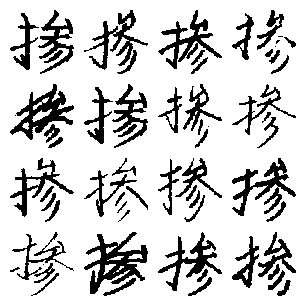 掺掺掺掺
掺掺掺掺
掺掺掺掺
掺掺掺掺